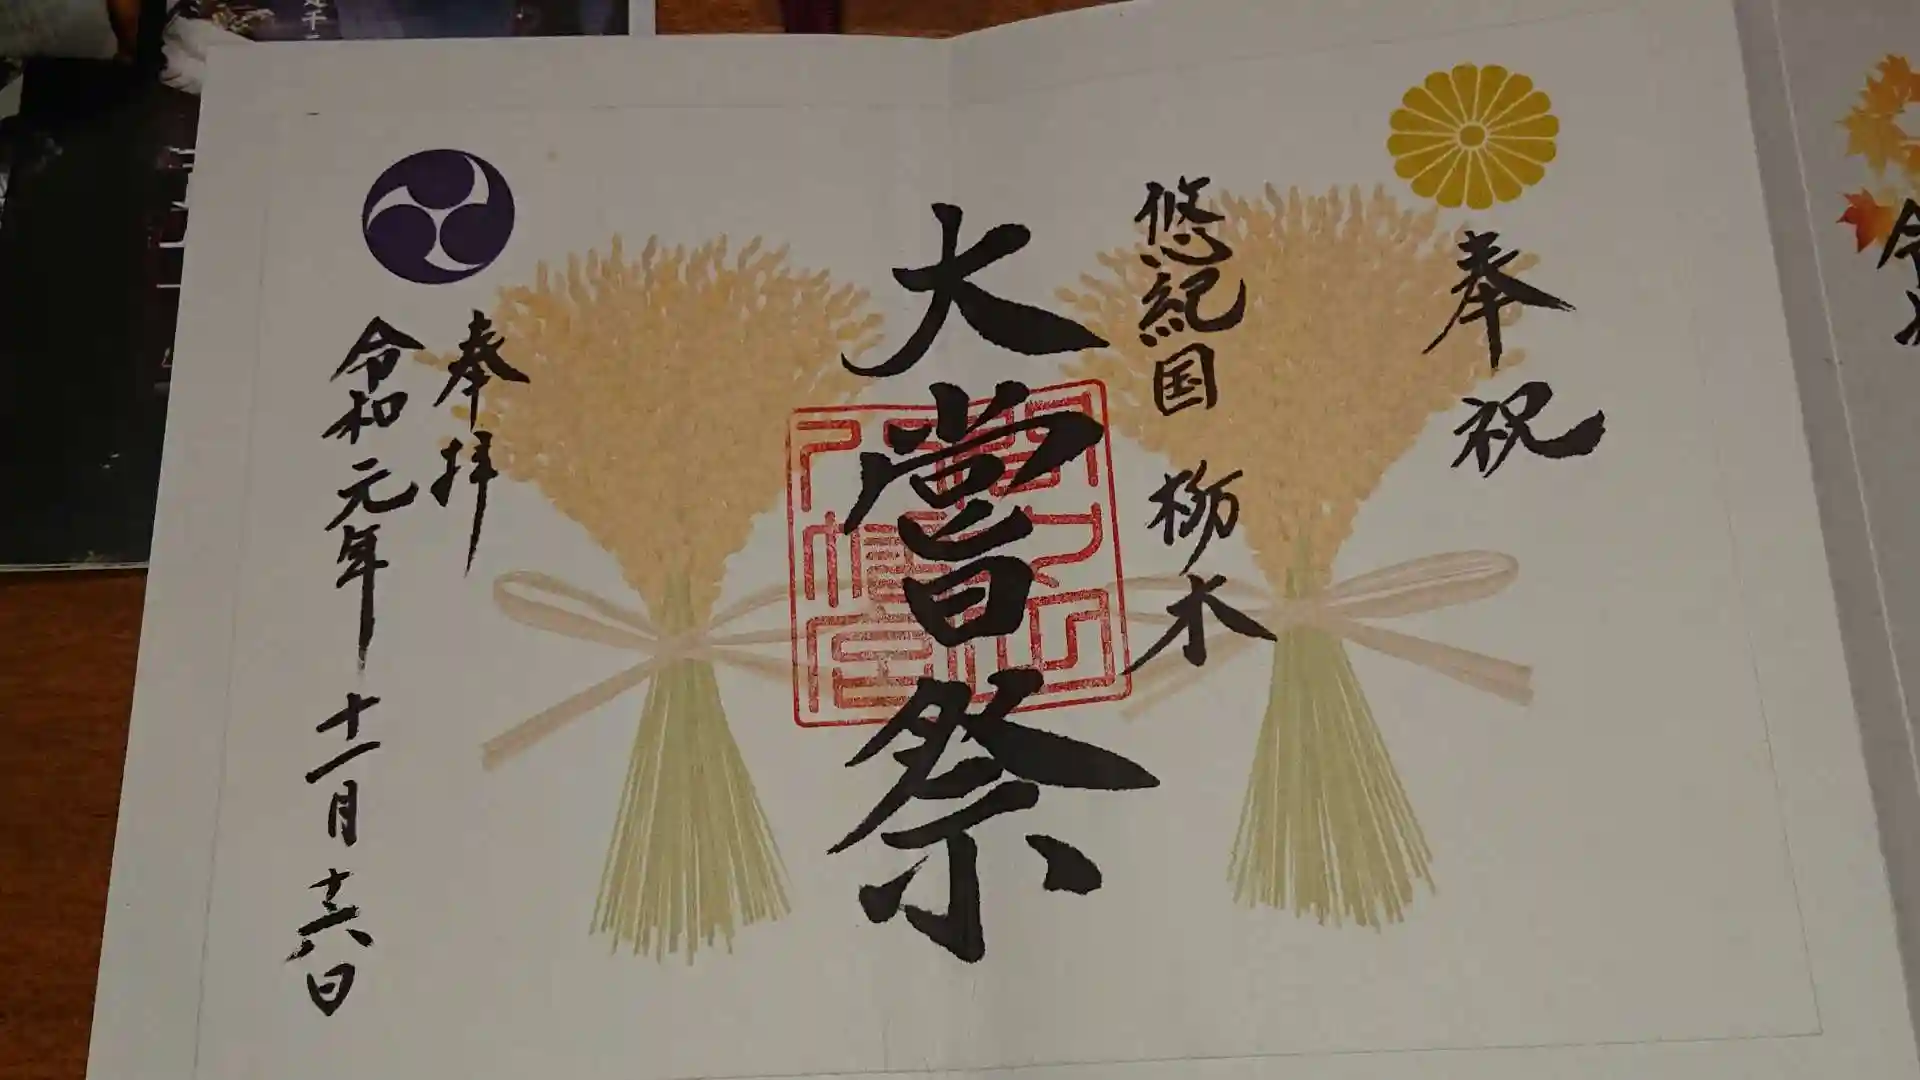 奉祝
悠紀国 栃木
大嘗祭
奉拝
令和元年 十一月 十六日